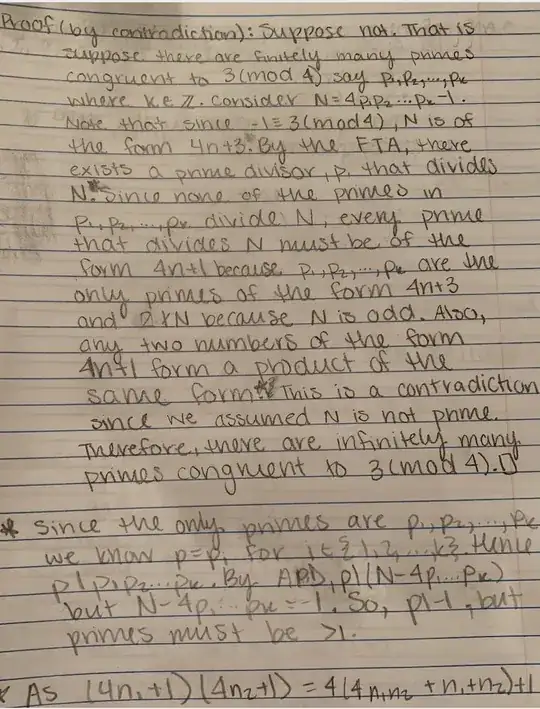 Proof (by contradiction): Suppose not. That is
suppose there are finitely many primes
congruent to 3 (mod 4), say p₁, p₂, ..., pₖ
where k ∈ ℤ. Consider N = 4p₁p₂...pₖ - 1.
Note that since -1 ≡ 3 (mod 4), N is of
the form 4n+3. By the FTA, there
exists a prime divisor, p, that divides
N.* Since none of the primes in
p₁, p₂, ..., pₖ divide N, every prime
that divides N must be of the
form 4n+1 because p₁, p₂, ..., pₖ are the
only primes of the form 4n+3
and 2∤N because N is odd. Also,
any two numbers of the form
4n+1 form a product of the
same form.* This is a contradiction
since we assumed N is not prime.
Therefore, there are infinitely many
primes congruent to 3 (mod 4). □
* Since the only primes are p₁, p₂, ..., pₖ
we know p = pᵢ for i ∈ {1, 2, ..., k}. Hence
p | p₁p₂...pₖ. By APD, p | (N - 4p₁...pₖ)
but N - 4p₁...pₖ = -1. So, p | -1, but
primes must be > 1.
* As (4n₁+1)(4n₂+1) = 4(4n₁n₂ + n₁ + n₂) + 1